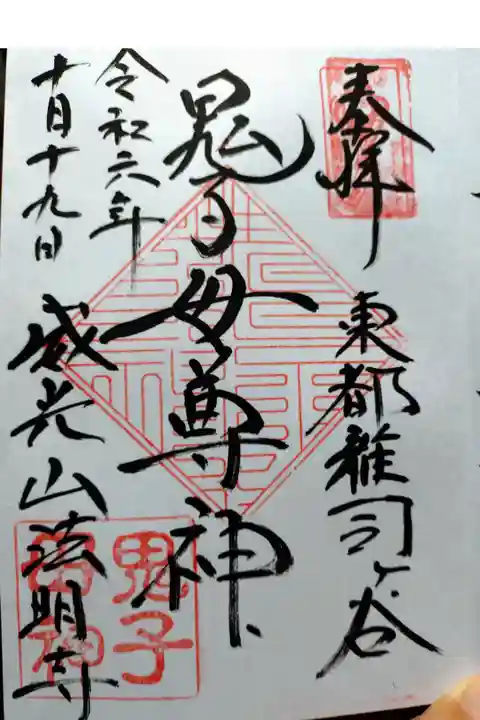 奉拝
東都雑司ヶ谷
鬼子母尊神
令和六年
十月十九日
威光山法明寺
鬼子